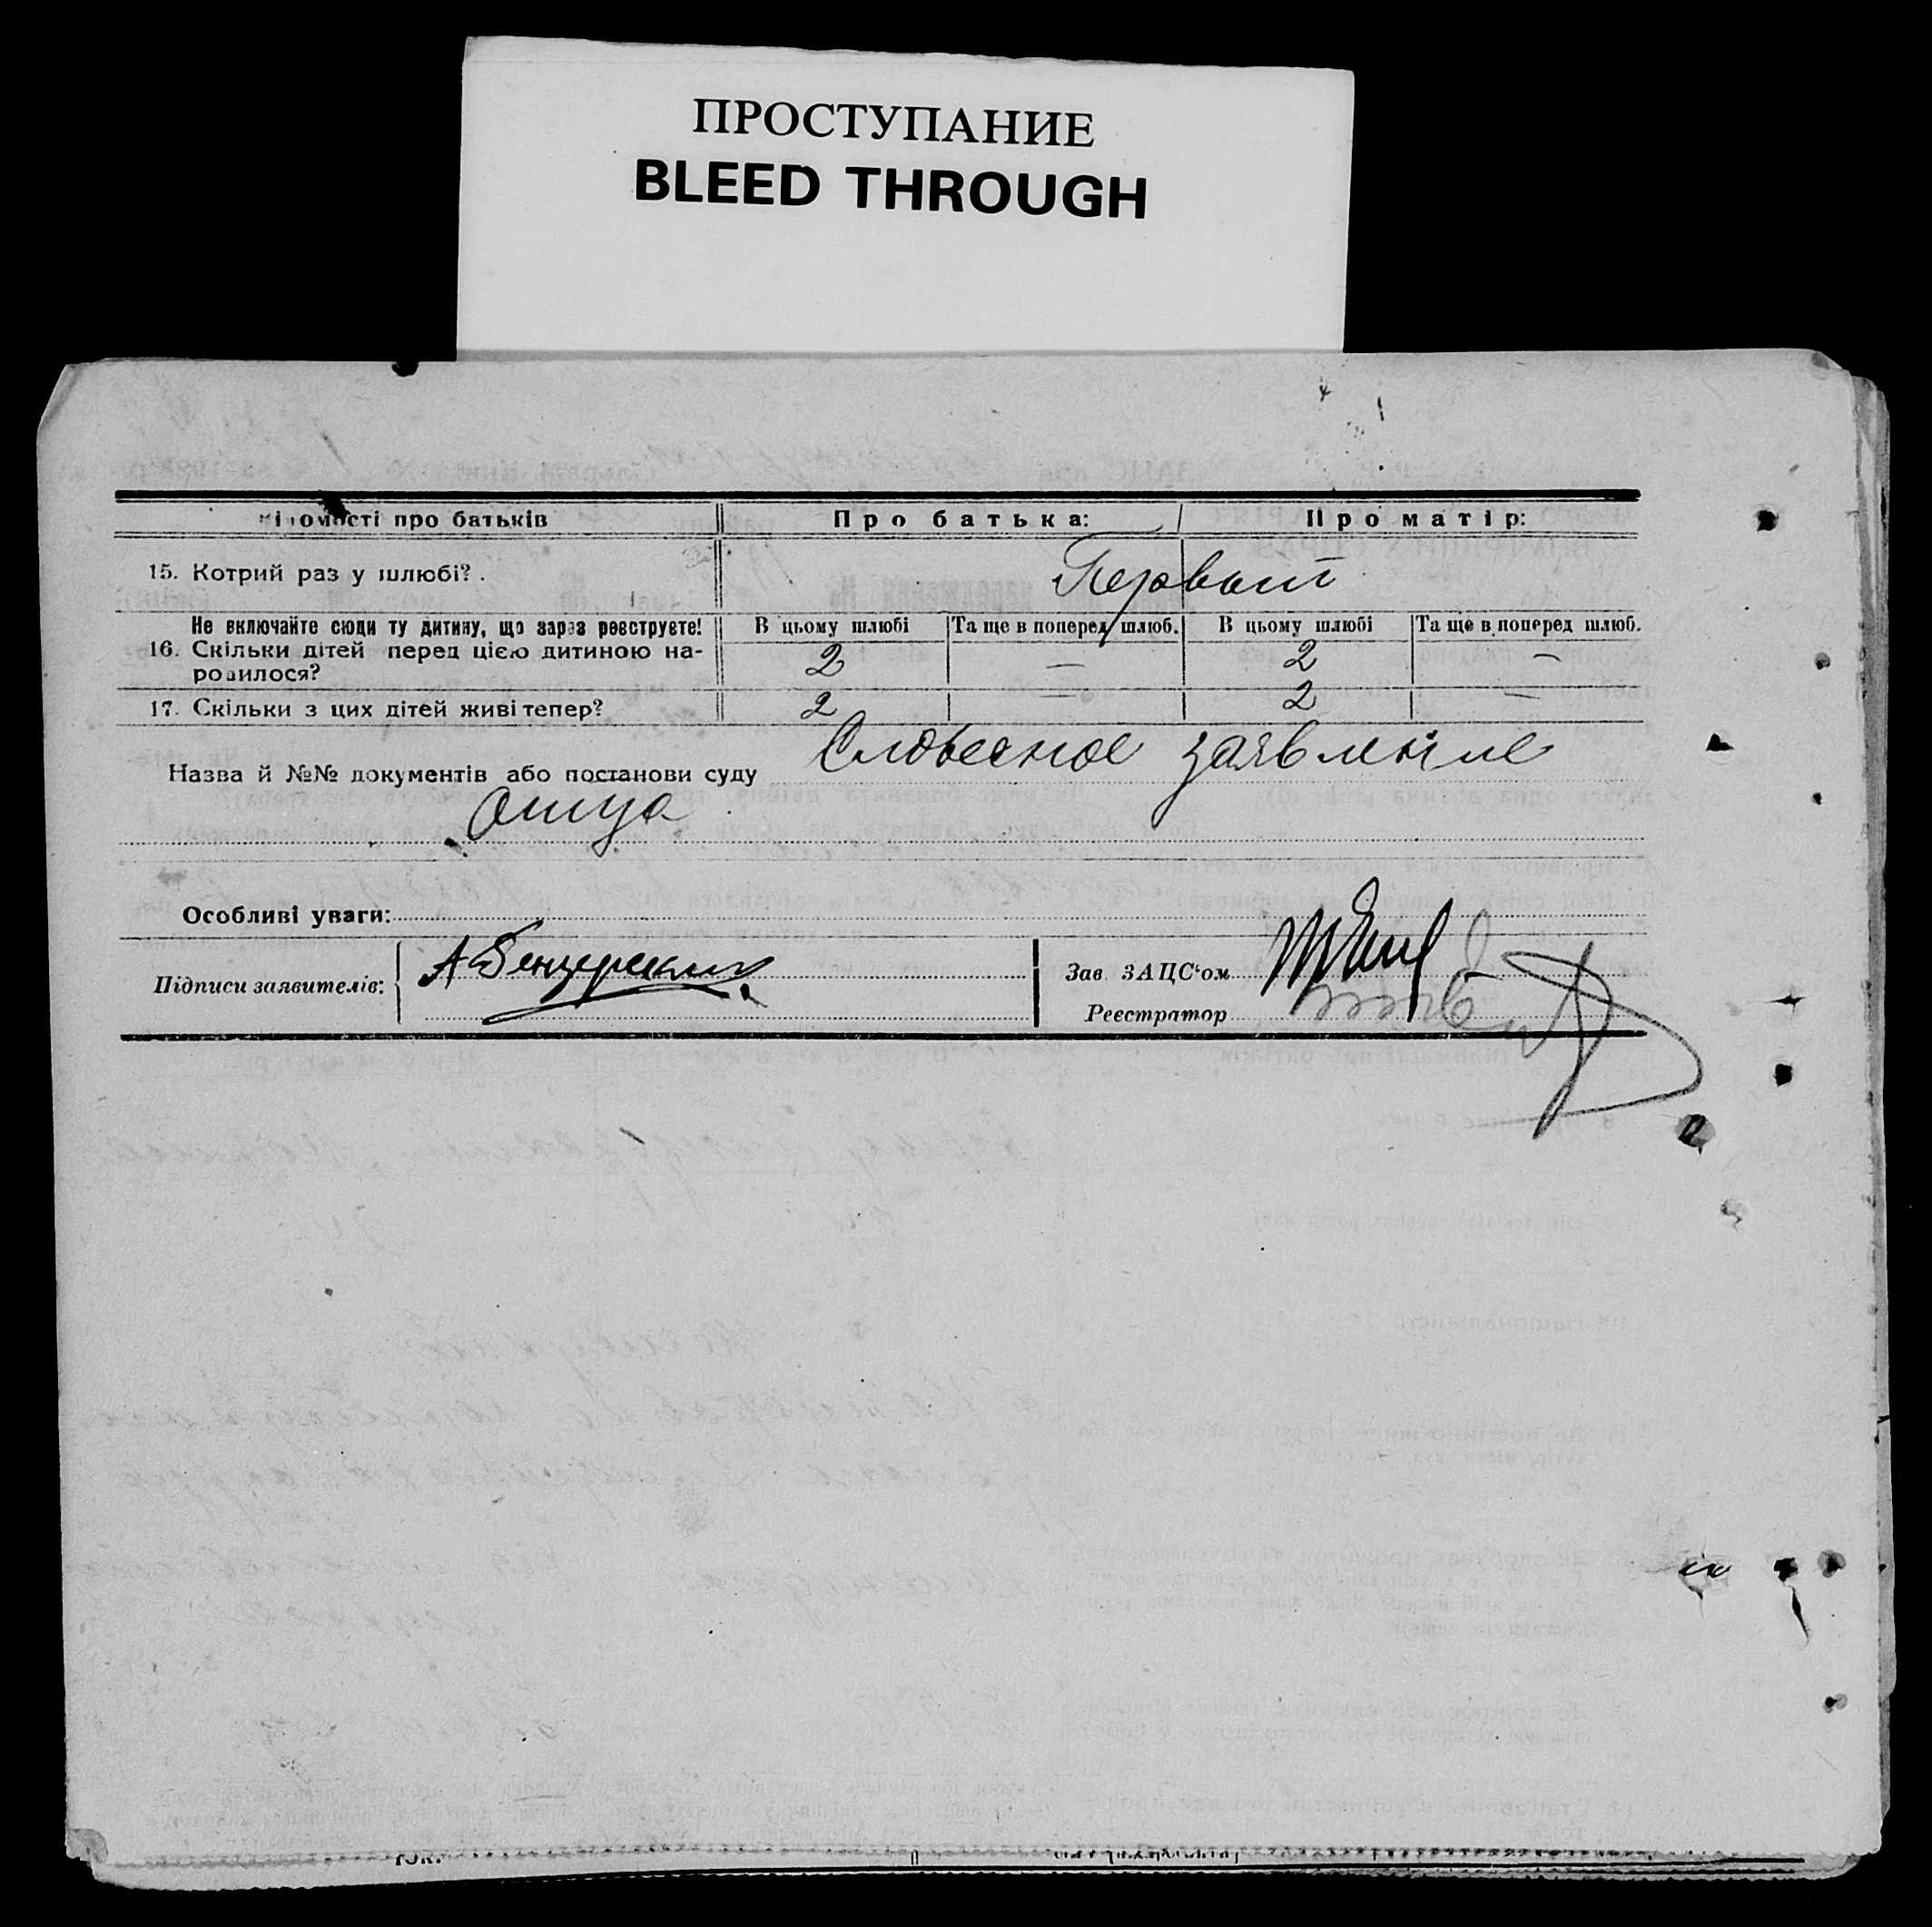 ПРОСТУПАНИЕ
BLEED THROUGH
ідомості про батьків Про батька: Про матір:
15. Котрий раз у шлюбі? Первый
Не включайте сюди ту дитину, що зараз реєструєте! В цьому шлюбі Та ще в поперед. шлюб. В цьому шлюбі Та ще в поперед шлюб.
16. Скільки дітей перед цією дитиною на-
родилося? 2 — 2 —
17. Скільки з цих дітей живі тепер? 2 — 2 —
Назва й №№ документів або постанови суду Словесное заявление
отца
Особливі уваги:
Підписи заявителів: Зав. ЗАЦС'ом
Реєстратор